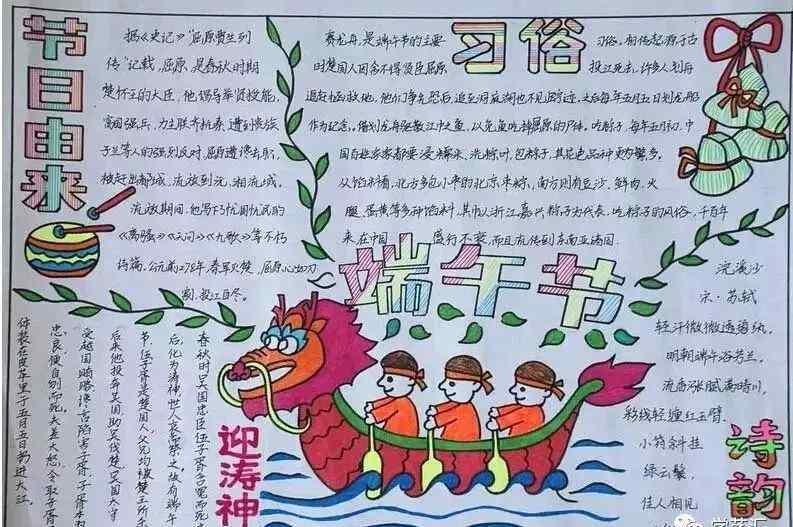 节日由来
据《史记》"屈原贾生列
传"记载,屈原,是春秋时期
楚怀王的大臣,他倡导举贤授能,
富国强兵,力主联齐抗秦,遭到贵族
子兰等人的强烈反对,屈原遭谗去职,
被赶出都城,流放到沅、湘流域。
流放期间,他写下了忧国忧民的
《离骚》《天问》《九歌》等不朽
诗篇,公元前278年,秦军攻楚,屈原心如刀
割,投江自尽。
习俗
赛龙舟,是端午节的主要
习俗,相传起源于古
时楚国人因舍不得贤臣屈原
投江死去,许多人划舟
追赶拯救他,他们争先恐后,追至洞庭湖也不见踪迹,之后每年五月五日划龙船
作为纪念。借划龙舟驱散江中之鱼,以免鱼吃掉屈原的尸体。吃粽子,每年五月初,中
国百姓家家都要浸糯米、洗粽叶,包粽子,其花色品种更为繁多。
从馅料看,北方多包小枣的北京枣粽,南方则有豆沙、鲜肉、火
腿、蛋黄等多种馅料,其中以浙江嘉兴粽子为代表。吃粽子的风俗,千百年
来在中国
盛行不衰,而且流传到东南亚诸国.
端午节
迎涛神
春秋时吴国忠臣伍子胥含冤而死
后,化为涛神,世人哀而祭之,故有端午
节,伍子胥是楚国人,父兄均被楚王所杀
后来他投奔吴国,助吴伐楚,吴国大守
受越国贿赂,谗言陷害子胥,子胥本
忠良,便自刎而死,夫差大怒,令取子胥
体装在皮革里于五月五日扔进大江。
诗韵
浣溪沙
宋·苏轼
轻汗微微透碧纨,
明朝端午浴芳兰。
流香涨腻满晴川,
彩线轻缠红玉臂,
小符斜挂
绿云鬟,
佳人相见